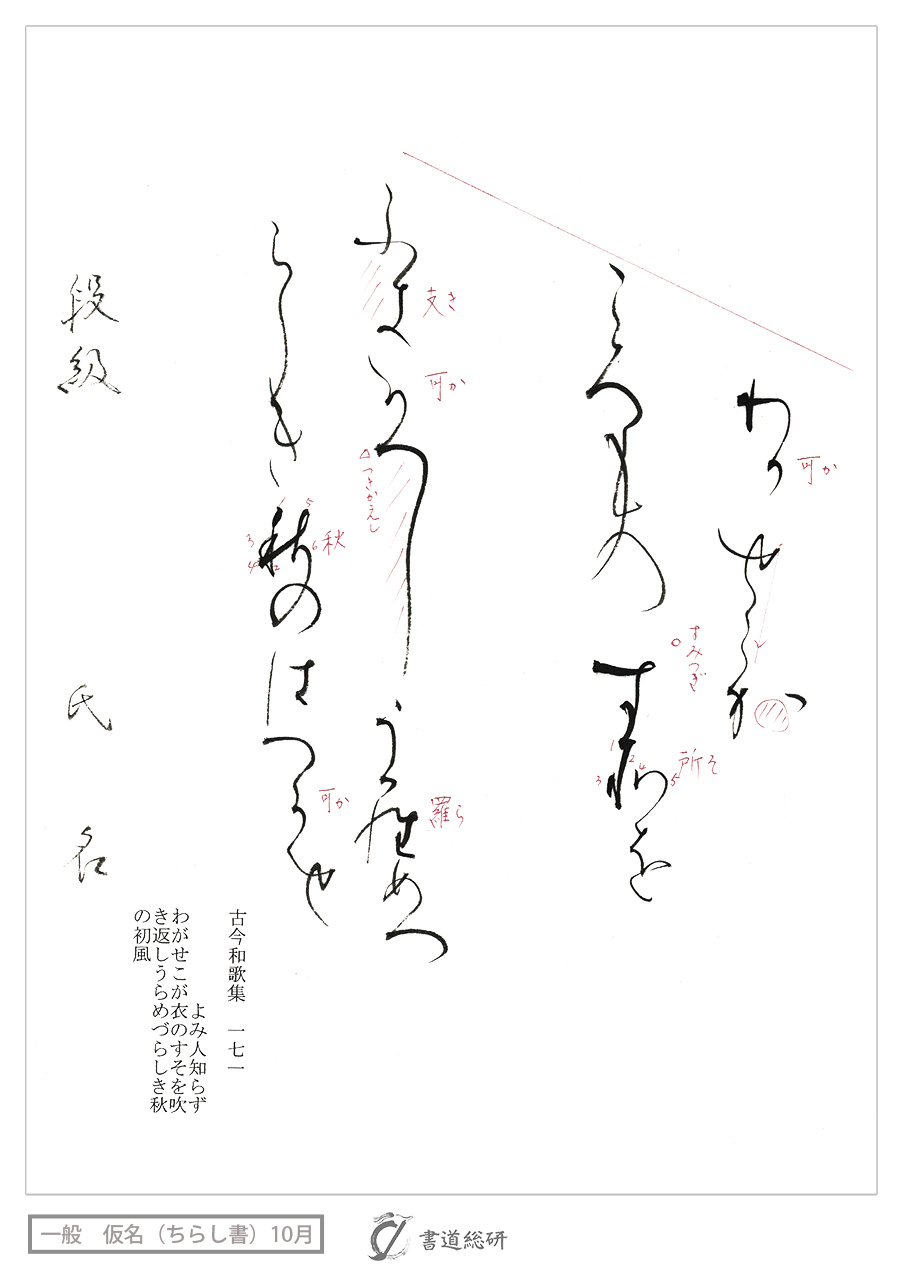 わ可せこか
可か
ころものす所を
すみつぎ
所そ
1 2 3 4 5
ふ支可へしう羅めつ
支き
可か
つきかえし
羅ら
らしき秋のはつ可せ
秋
2 3 4 5 6
可か
段級 氏名
古今和歌集 一七一
よみ人知らず
わがせこが衣のすそを吹
き返しうらめづらしき秋
の初風
一般 仮名（ちらし書）10月
書道総研